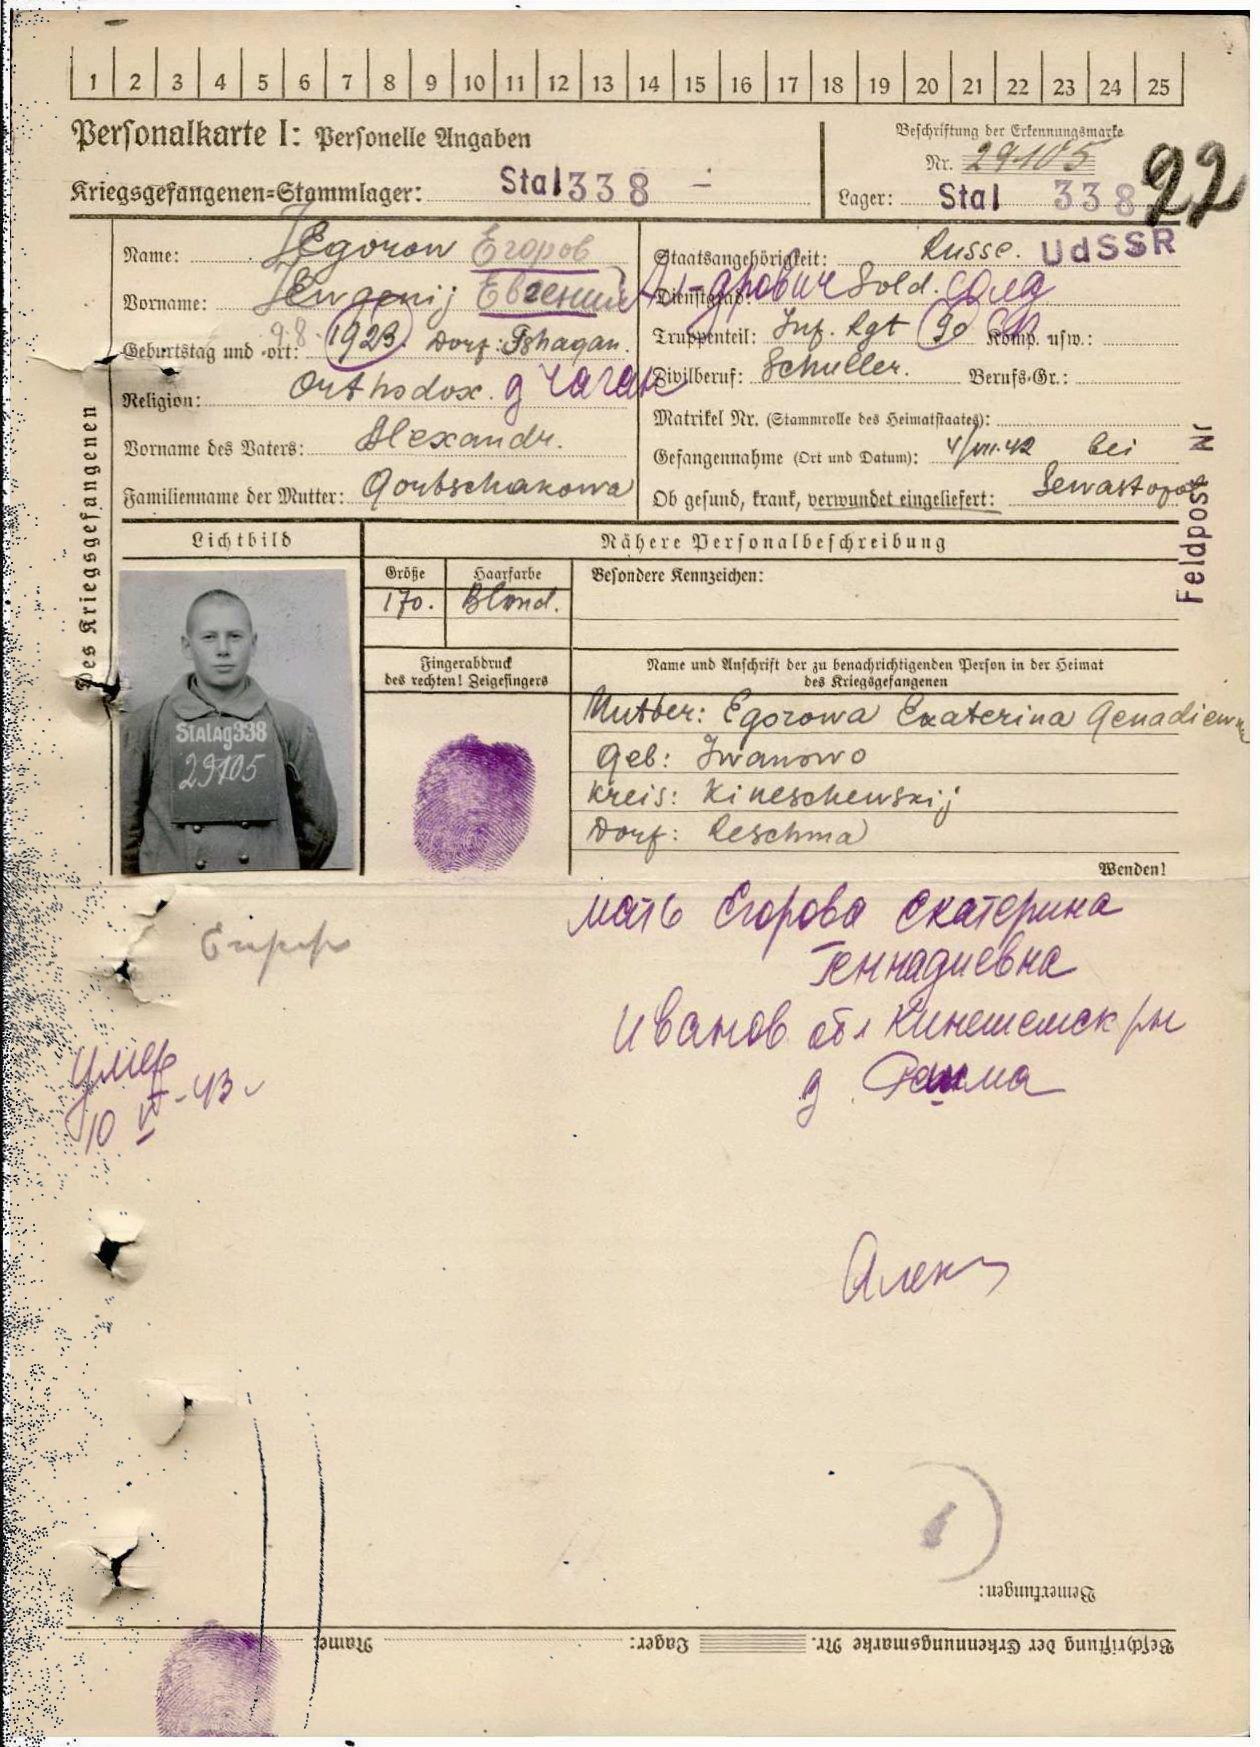 1 2 3 4 5 6 7 8 9 10 11 12 13 14 15 16 17 18 19 20 21 22 23 24 25
Personalkarte I: Personelle Angaben
Beschriftung der Erkennungsmarke
Nr. 29105
Kriegsgefangenen=Stammlager: Stal 338 –
Lager: Stal 338
92
Des Kriegsgefangenen
Name: Jegorow Егоров
Vorname: Jewgenij Евгений Ал-дрович
Geburtstag und -ort: 9.8. 1923. Dorf: Tshagan.
Religion: Orthodox. д Чаган
Vorname des Vaters: Alexandr.
Familienname der Mutter: Gorbschakowa
Staatsangehörigkeit: Russe. UdSSR
Dienstgrad: Sold. солд
Truppenteil: Inf. Rgt 90 Komp. usw.:
Zivilberuf: Schuller. Berufs-Gr.:
Matrikel Nr. (Stammrolle des Heimatstaates):
Gefangennahme (Ort und Datum): 4/VII.42 bei
Ob gesund, krank, verwundet eingeliefert: Sewastopol
Feldpost Nr
Lichtbild
Nähere Personalbeschreibung
Größe Haarfarbe Besondere Kennzeichen:
170. Blond.
Fingerabdruck
des rechten! Zeigefingers
Name und Anschrift der zu benachrichtigenden Person in der Heimat
des Kriegsgefangenen
Stalag 338
29105
Mutter: Egorowa Ekaterina Genadiewna
Geb: Iwanowo
Kreis: Kineschewskij
Dorf: Reschma
Wenden!
мать Егорова Екатерина
Геннадиевна
Иванов обл Кинешемск рн
д Решма
Егоров
умер
10 VI - 43
Алек
Bemerkungen:
Beschriftung der Erkennungsmarke Nr. Lager: Name: